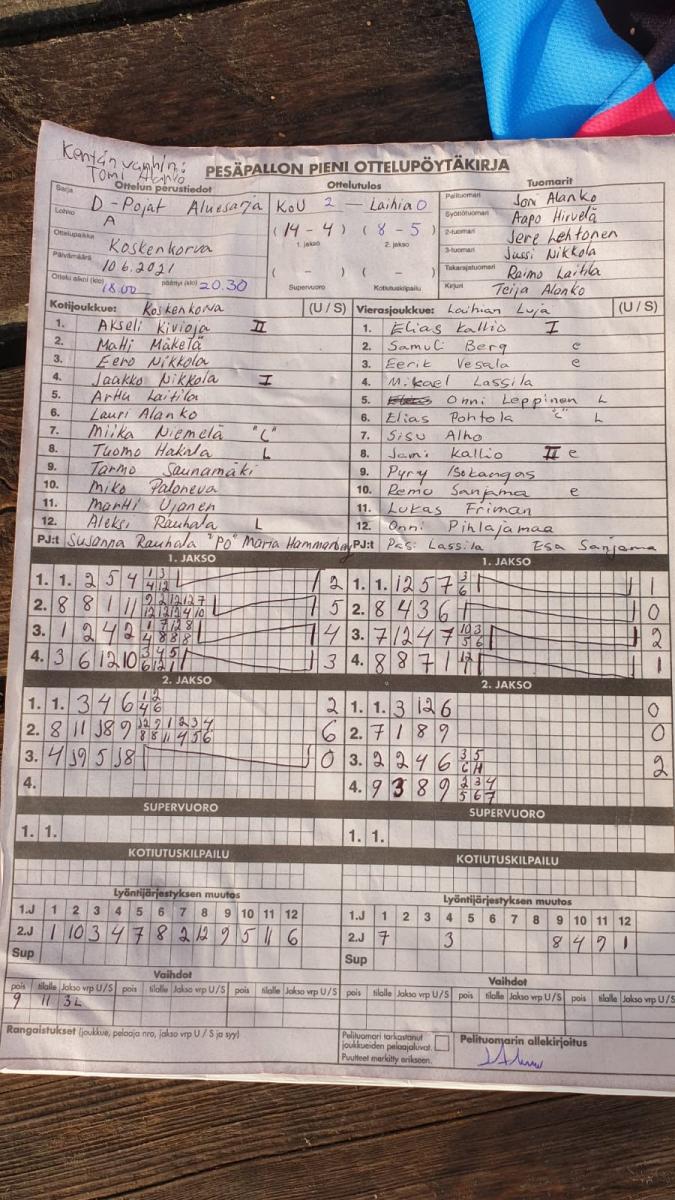 Kentän vanhin:
Tomi Alanko
PESÄPALLON PIENI OTTELUPÖYTÄKIRJA
Ottelun perustiedot
Ottelutulos
Tuomarit
Sarja D-Pojat Aluesarja
Lohko A
Ottelupaikka Koskenkorva
Päivämäärä 10.6.2021
Ottelu alkoi (klo) 18.00 päättyi (klo) 20.30
KoU 2 - Laihia 0
(14 - 4) (8 - 5)
1. jakso 2. jakso
( - ) ( - )
Supervuoro Kotiutuskilpailu
Pelituomari Joni Alanko
Syöttötuomari Aapo Hirvelä
2-tuomari Jere Lehtonen
3-tuomari Jussi Nikkola
Takarajatuomari Raimo Laitila
Kirjuri Teija Alanko
Kotijoukkue: Koskenkorva (U / S)
1. Akseli Kivioja II
2. Matti Mäkelä
3. Eero Nikkola
4. Jaakko Nikkola I
5. Arttu Laitila
6. Lauri Alanko
7. Miika Niemelä "C"
8. Tuomo Hakala L
9. Tarmo Saunamäki
10. Miko Paloneva
11. Martti Ujanen
12. Aleksi Rauhala L
PJ:t Susanna Rauhala "PO" Maria Hammarberg
Vierasjoukkue: Laihian Luja (U / S)
1. Elias Kallio I
2. Samuli Berg e
3. Eerik Vesala e
4. Mikael Lassila
5. Onni Leppinen L
6. Elias Pohtola "C" L
7. Sisu Alho
8. Jami Kallio II e
9. Pyry Isokangas
10. Remu Sanjama e
11. Lukas Friman
12. Onni Pihlajamaa
PJ:t Pasi Lassila Esa Sanjama
1. JAKSO
1. 1. 2 5 4 2
2. 8 8 1 11 5
3. 1 2 4 2 4
4. 3 6 12 10 3
2. JAKSO
1. 1. 3 4 6 2
2. 8 11 9 6
3. 4 5 0
4.
SUPERVUORO
1. 1.
KOTIUTUSKILPAILU
Lyöntijärjestyksen muutos
1.J 1 2 3 4 5 6 7 8 9 10 11 12
2.J 1 10 3 4 7 8 2 12 9 5 11 6
Sup
Vaihdot
pois tilalle Jakso vrp U/S pois tilalle Jakso vrp U/S pois tilalle Jakso vrp U/S
9 11 3L
Rangaistukset (joukkue, pelaaja nro, jakso vrp U / S ja syy)
1. JAKSO
1. 1. 12 5 7 1
2. 8 4 3 6 0
3. 7 12 4 7 2
4. 8 8 7 1 1
2. JAKSO
1. 1. 3 12 6 0
2. 7 1 8 9 0
3. 2 2 4 6 2
4. 9 3 8 9
SUPERVUORO
1. 1.
KOTIUTUSKILPAILU
Lyöntijärjestyksen muutos
1.J 1 2 3 4 5 6 7 8 9 10 11 12
2.J 7 3 8 4 9 1
Sup
Vaihdot
pois tilalle Jakso vrp U/S pois tilalle Jakso vrp U/S pois tilalle Jakso vrp U/S
Pelituomari tarkastanut
joukkueiden pelaajaluvat.
Puutteet merkitty erikseen.
Pelituomarin allekirjoitus